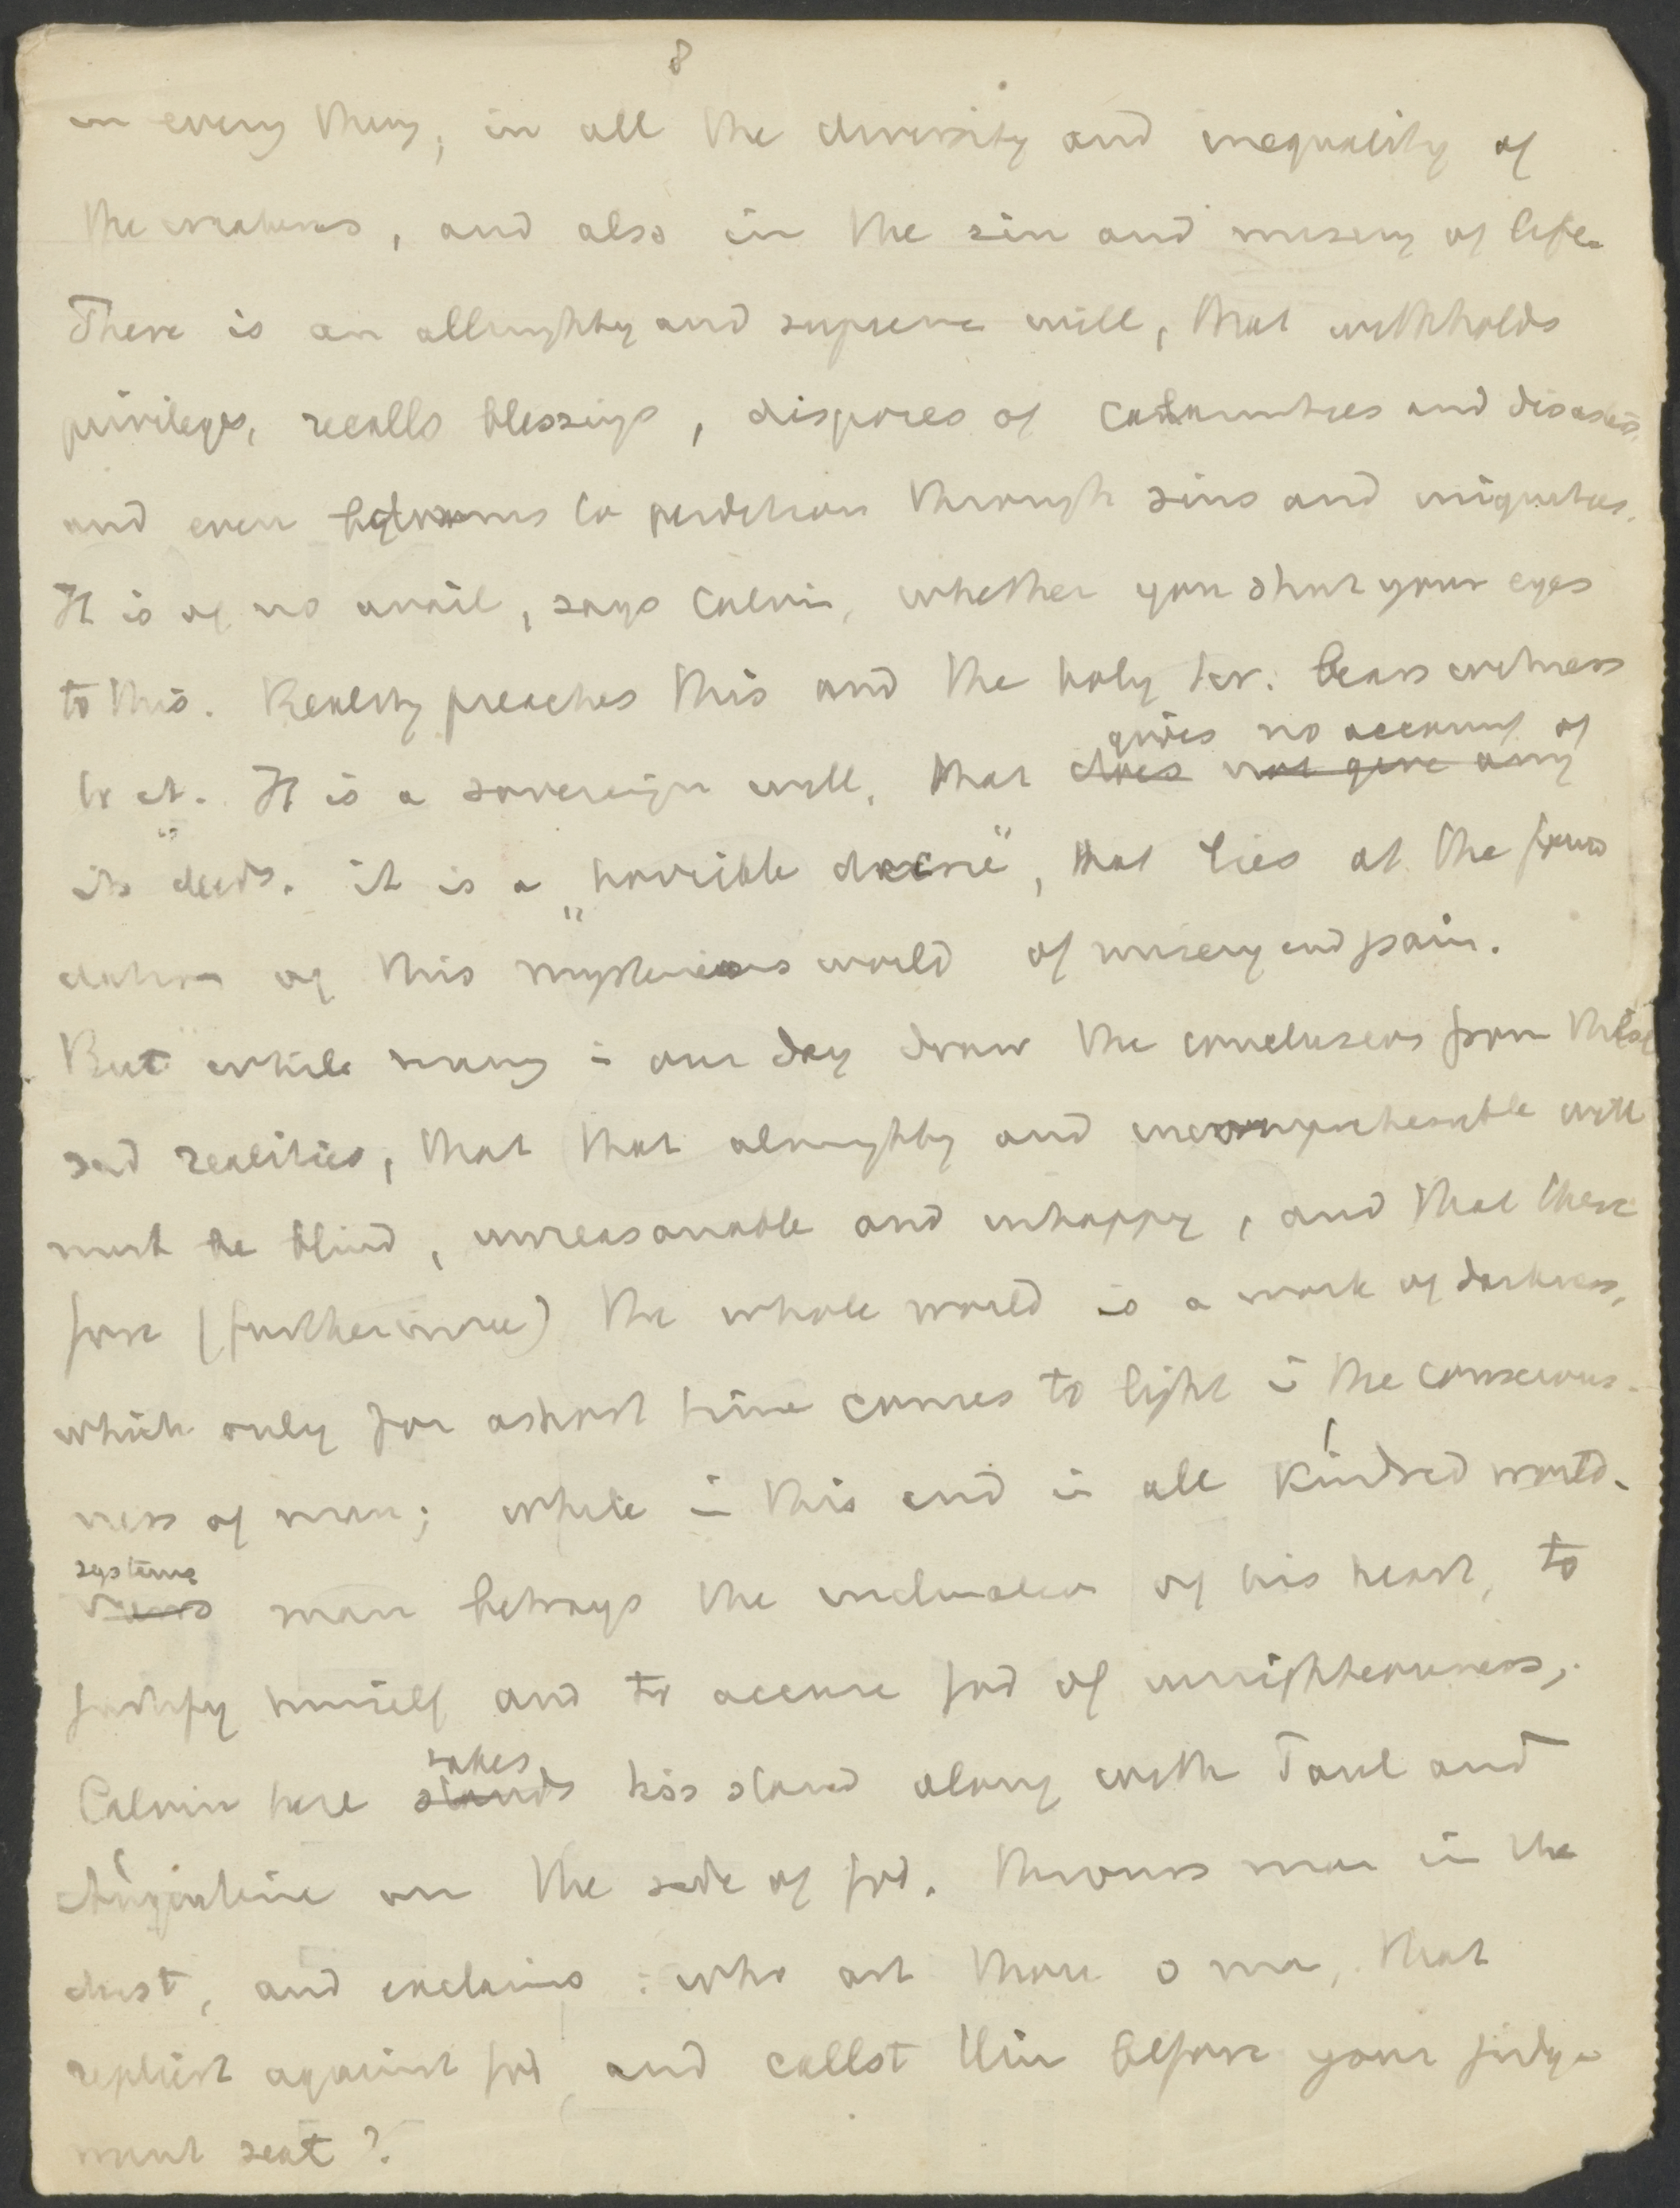 8
in every thing, in all the diversity and inequality of
the creatures, and also in the sin and misery of life.
There is an allmighty and supreme will, that withholds
privileges, recalls blessings, dispores of calamities and disasters,
and even to perdition through sins and iniquities.
It is of no avail, says Calvin, whether you shut your eyes
to this. Reality preaches this and the holy scr. bears witness
gives no account of
to it. It is a sovereign will, that does not give any
its deeds. it is a „horrible decree", that lies at the foun
dation of this mysterious world of misery and pain.
But while many in our day draw the conclusions from these
sad realities, that that almighty and incomprehensible will
must be blind, unreasonable and unhappy, and that there
fore (furthermore) the whole world is a work of darkness,
which only for ashort time comes to light in the conscious-
ness of man; while in this and in all kindred world-
systems
views man betrays the inclination of his heart, to
justify himself and to accuse God of unrighteousness,
takes
Calvin here stands his stand along with Paul and
Augustine on the side of God. throws man in the
dust, and exclaims: who art thou o man, that
repliest against God, and callst Him before your judge
ment seat?